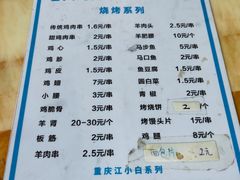 烧烤系列
传统鸡肉串 1.6元/串
甜鸡肉串 2元/串
鸡心 2元/串
鸡胗 2元/串
鸡皮 2元/串
鸡翅 7元/串
小腰 3元/串
鸡脆骨 3元/串
羊肾 20-30元/个
板筋 2元/串
羊肉串 2.5元/串
羊肉头 2.5元/串
羊肥腰 10元/个
马步鱼 5元/串
马口鱼 2元/串
鱼豆腐 2.5元/串
圆白菜 1.5元/串
青椒 2元/串
烤烧饼 2元/个
烤馒头片 1元/串
鸡腿 8元/只
面包片 2元
重庆江小白系列